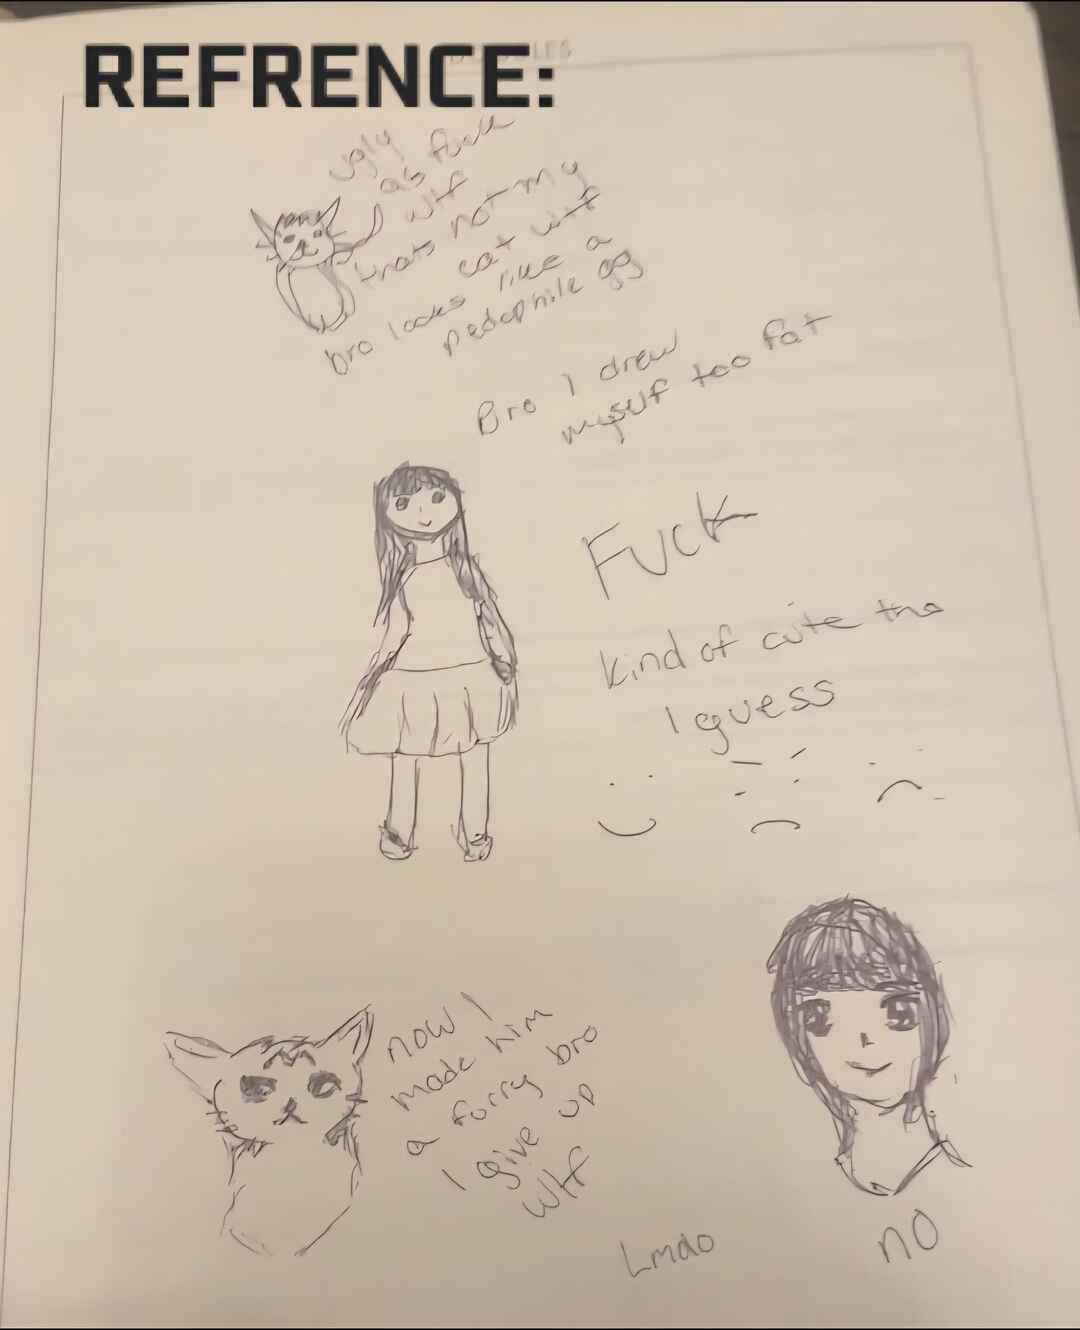 REFRENCE:
DOODLES
ugly
as fuck
wtf
thats not my
cat wtf
bro looks like a
pedophile gg
Bro I drew
myself too fat
Fuck
kind of cute tho
I guess
now I
made him
a furry bro
I give up
wtf
Lmao
no